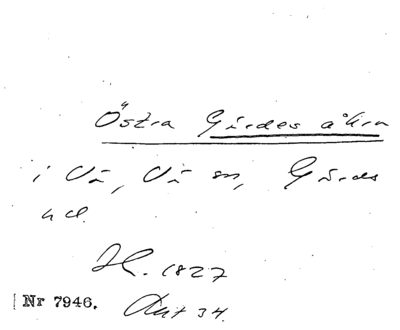 Östra Gärdes åkra
i Vä, Vä sn, Gärds
hd.
H. 1827
Nr 7946. Akt 34.